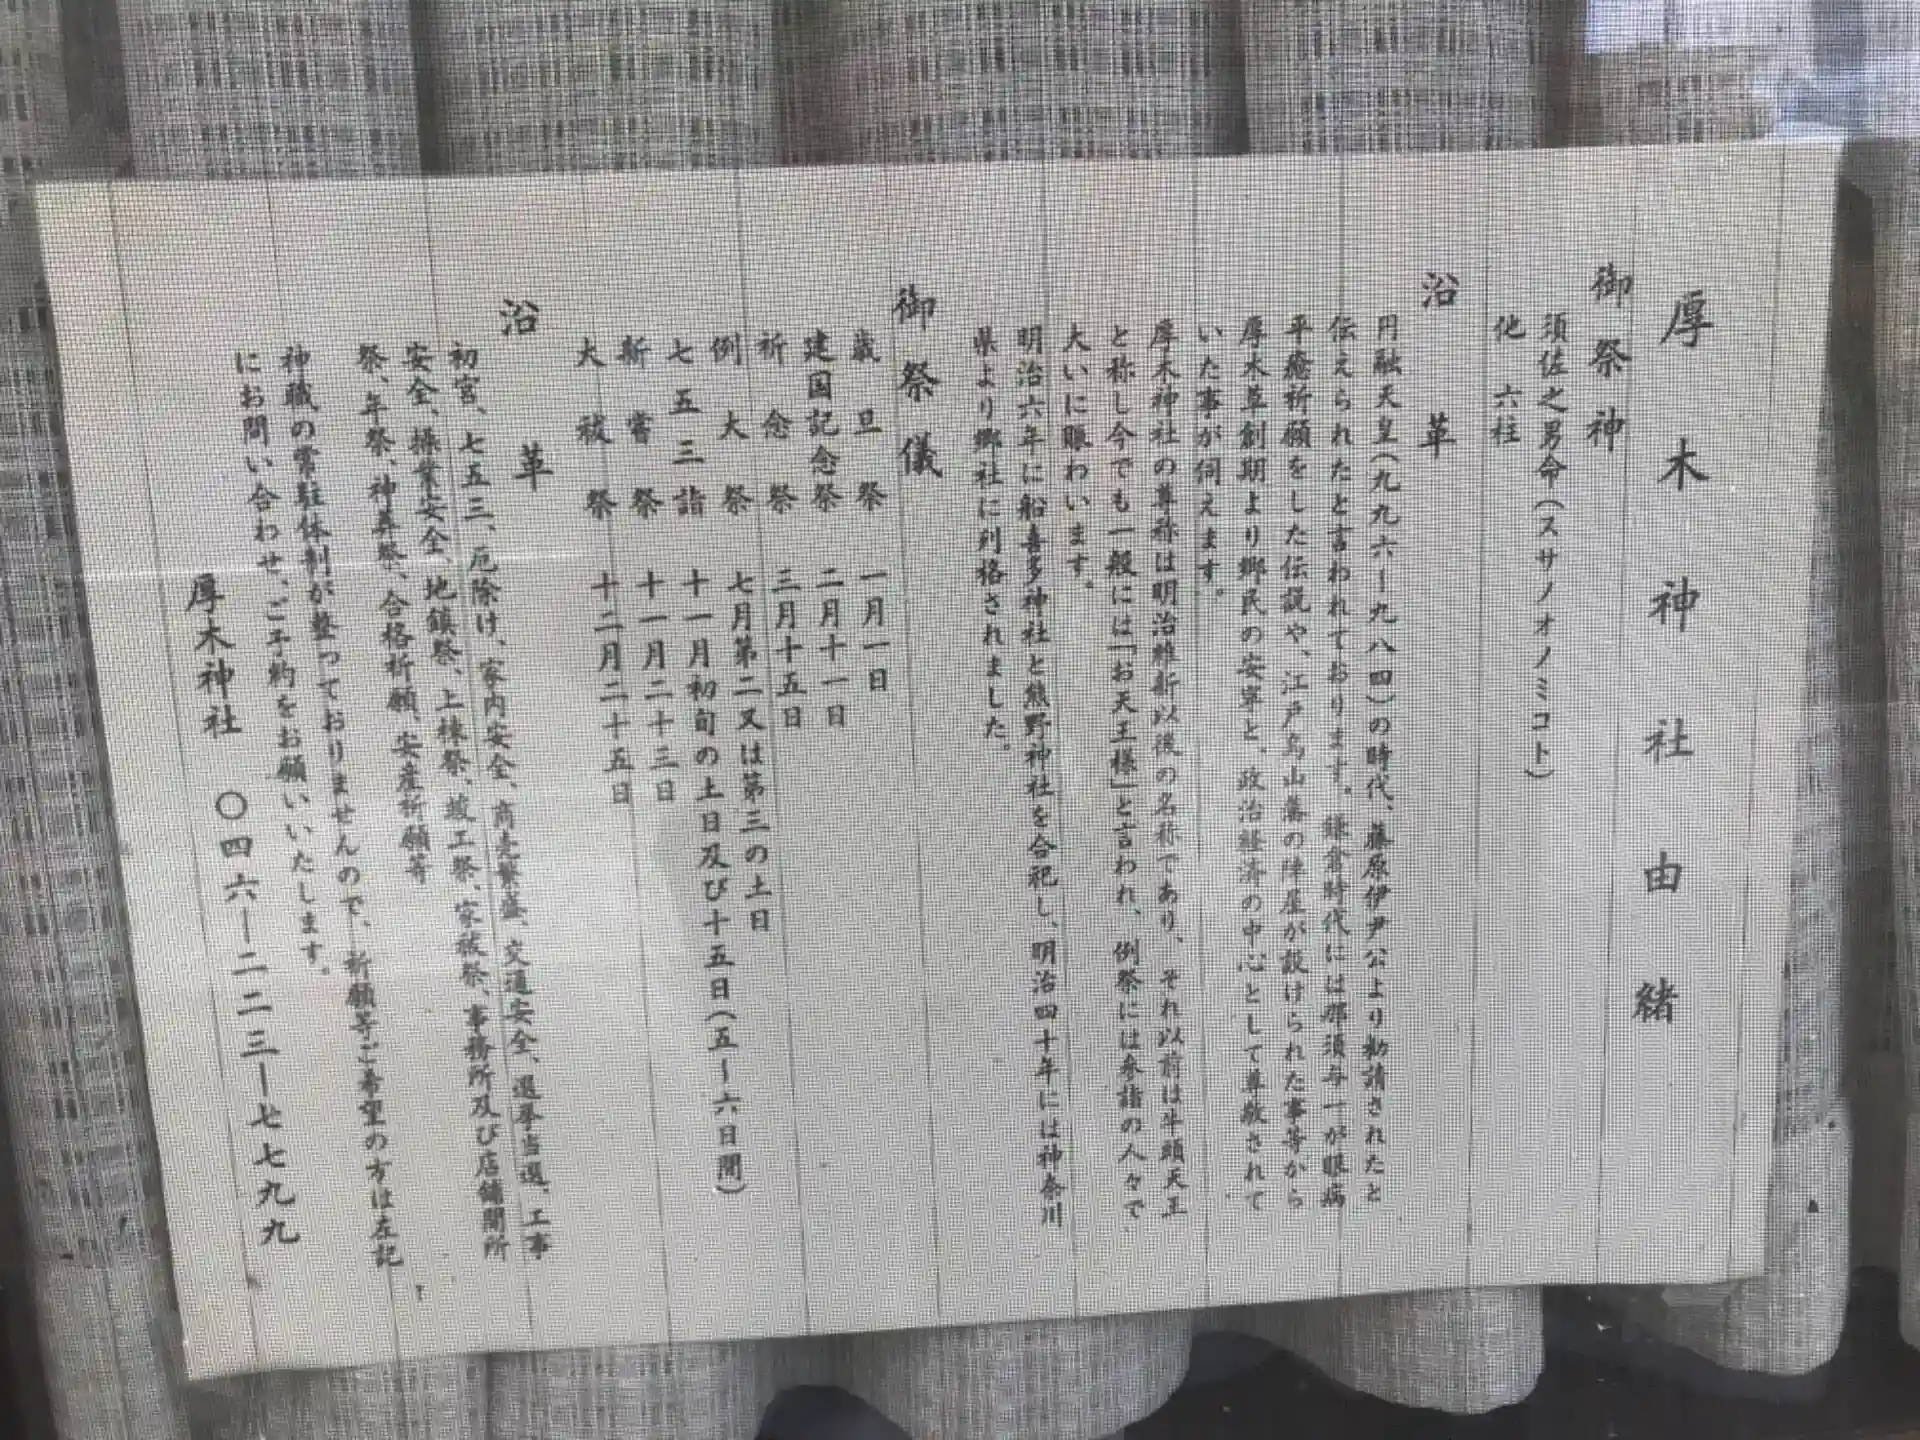 厚木神社由緒
御祭神
須佐之男命(スサノオノミコト)
他 六柱
沿革
円融天皇(九九六ー九八四)の時代、藤原伊尹公より勧請されたと
伝えられたと言われております。鎌倉時代には那須与一が眼病
平癒祈願をした伝説や、江戸烏山藩の陣屋が設けられた事等から
厚木草創期より郷民の安寧と、政治経済の中心として尊敬されて
いた事が伺えます。
厚木神社の尊称は明治維新以後の名称であり、それ以前は牛頭天王
と称し今でも一般には「お天王様」と言われ、例祭には参詣の人々で
大いに賑わいます。
明治六年に船喜多神社と熊野神社を合祀し、明治四十年には神奈川
県より郷社に列格されました。
御祭儀
歳旦祭 一月一日
建国記念祭 二月十一日
祈念祭 三月十五日
例大祭 七月第二又は第三の土日
七五三詣 十一月初旬の土日及び十五日(五ー六日間)
新嘗祭 十一月二十三日
大祓祭 十二月二十五日
沿革
初宮、七五三、厄除け、家内安全、商売繁盛、交通安全、選挙当選、工事
安全、操業安全、地鎮祭、上棟祭、竣工祭、家祓祭、事務所及び店舗開所
祭、年祭、神葬祭、合格祈願、安産祈願等
神職の常駐体制が整っておりませんので、祈願等ご希望の方は左記
にお問い合わせ、ご予約をお願いいたします。
厚木神社 〇四六ー二二三ー七七九九